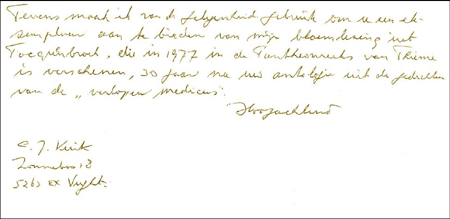 Tevens maak ik van de gelegenheid gebruik om u een ek-
semplaar aan te bieden van mijn bloemlezing uit
Focquenbroch, die in 1977 in de Pantheonreeks van Thieme
is verschenen, 30 jaar na uw antologie uit de gedichten
van de „verlopen medicus".
Hoogachtend
C.J. Kuik
Zonnebos 18
5263 EX Vught.